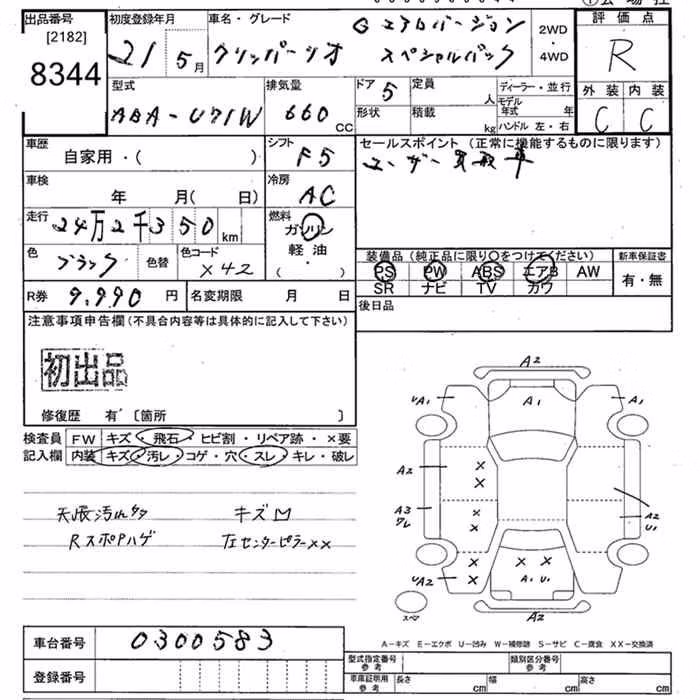 出品番号
[2182]
8344
初度登録年月
21 5 月
車名・グレード
G エアロバージョン
クリッパーリオ スペシャルパック
2WD
・
4WD
評価点
R
外装 内装
C C
型式
ABA-U71W
排気量
660 CC
ドア 5
形状
定員 人
積載 kg
ディーラー・並行
モデル年式 年
ハンドル 左・右
車歴
自家用・( )
シフト
F5
セールスポイント (正常に機能するものに限ります)
ユーザー買取車
車検
年 月( 日)
冷房
AC
走行
24万2千350 km
燃料
ガソリン
軽油
( ・ )
色
ブラック
色替
色コード
X42
装備品 (純正品に限り○をつけてください)
PS PW ABS エアB AW
SR ナビ TV カワ
新車保証書
有・無
R券 9,990 円
名変期限 月 日
後日品
注意事項申告欄 (不具合内容等は具体的に記入して下さい)
初出品
修復歴 有 〔箇所 〕
検査員
記入欄
FW キズ・飛石・ヒビ割・リペア跡・×要
内装 キズ・汚レ・コゲ・穴・スレ・キレ・破レ
天張汚れ多
キズ凹
RスポPハゲ
左センターピラーXX
A2
A1
A1
A1
A2
A3
ワレ
A2
U1
A2
A1 U1
スペア
A2
A-キズ E-エクボ U-凹み W-補修跡 S-サビ C-腐食 XX-交換済
車台番号 0300583
登録番号
型式指定番号
参考
類別区分番号
参考
車庫証明用
参考
長さ cm
幅 cm
高さ cm